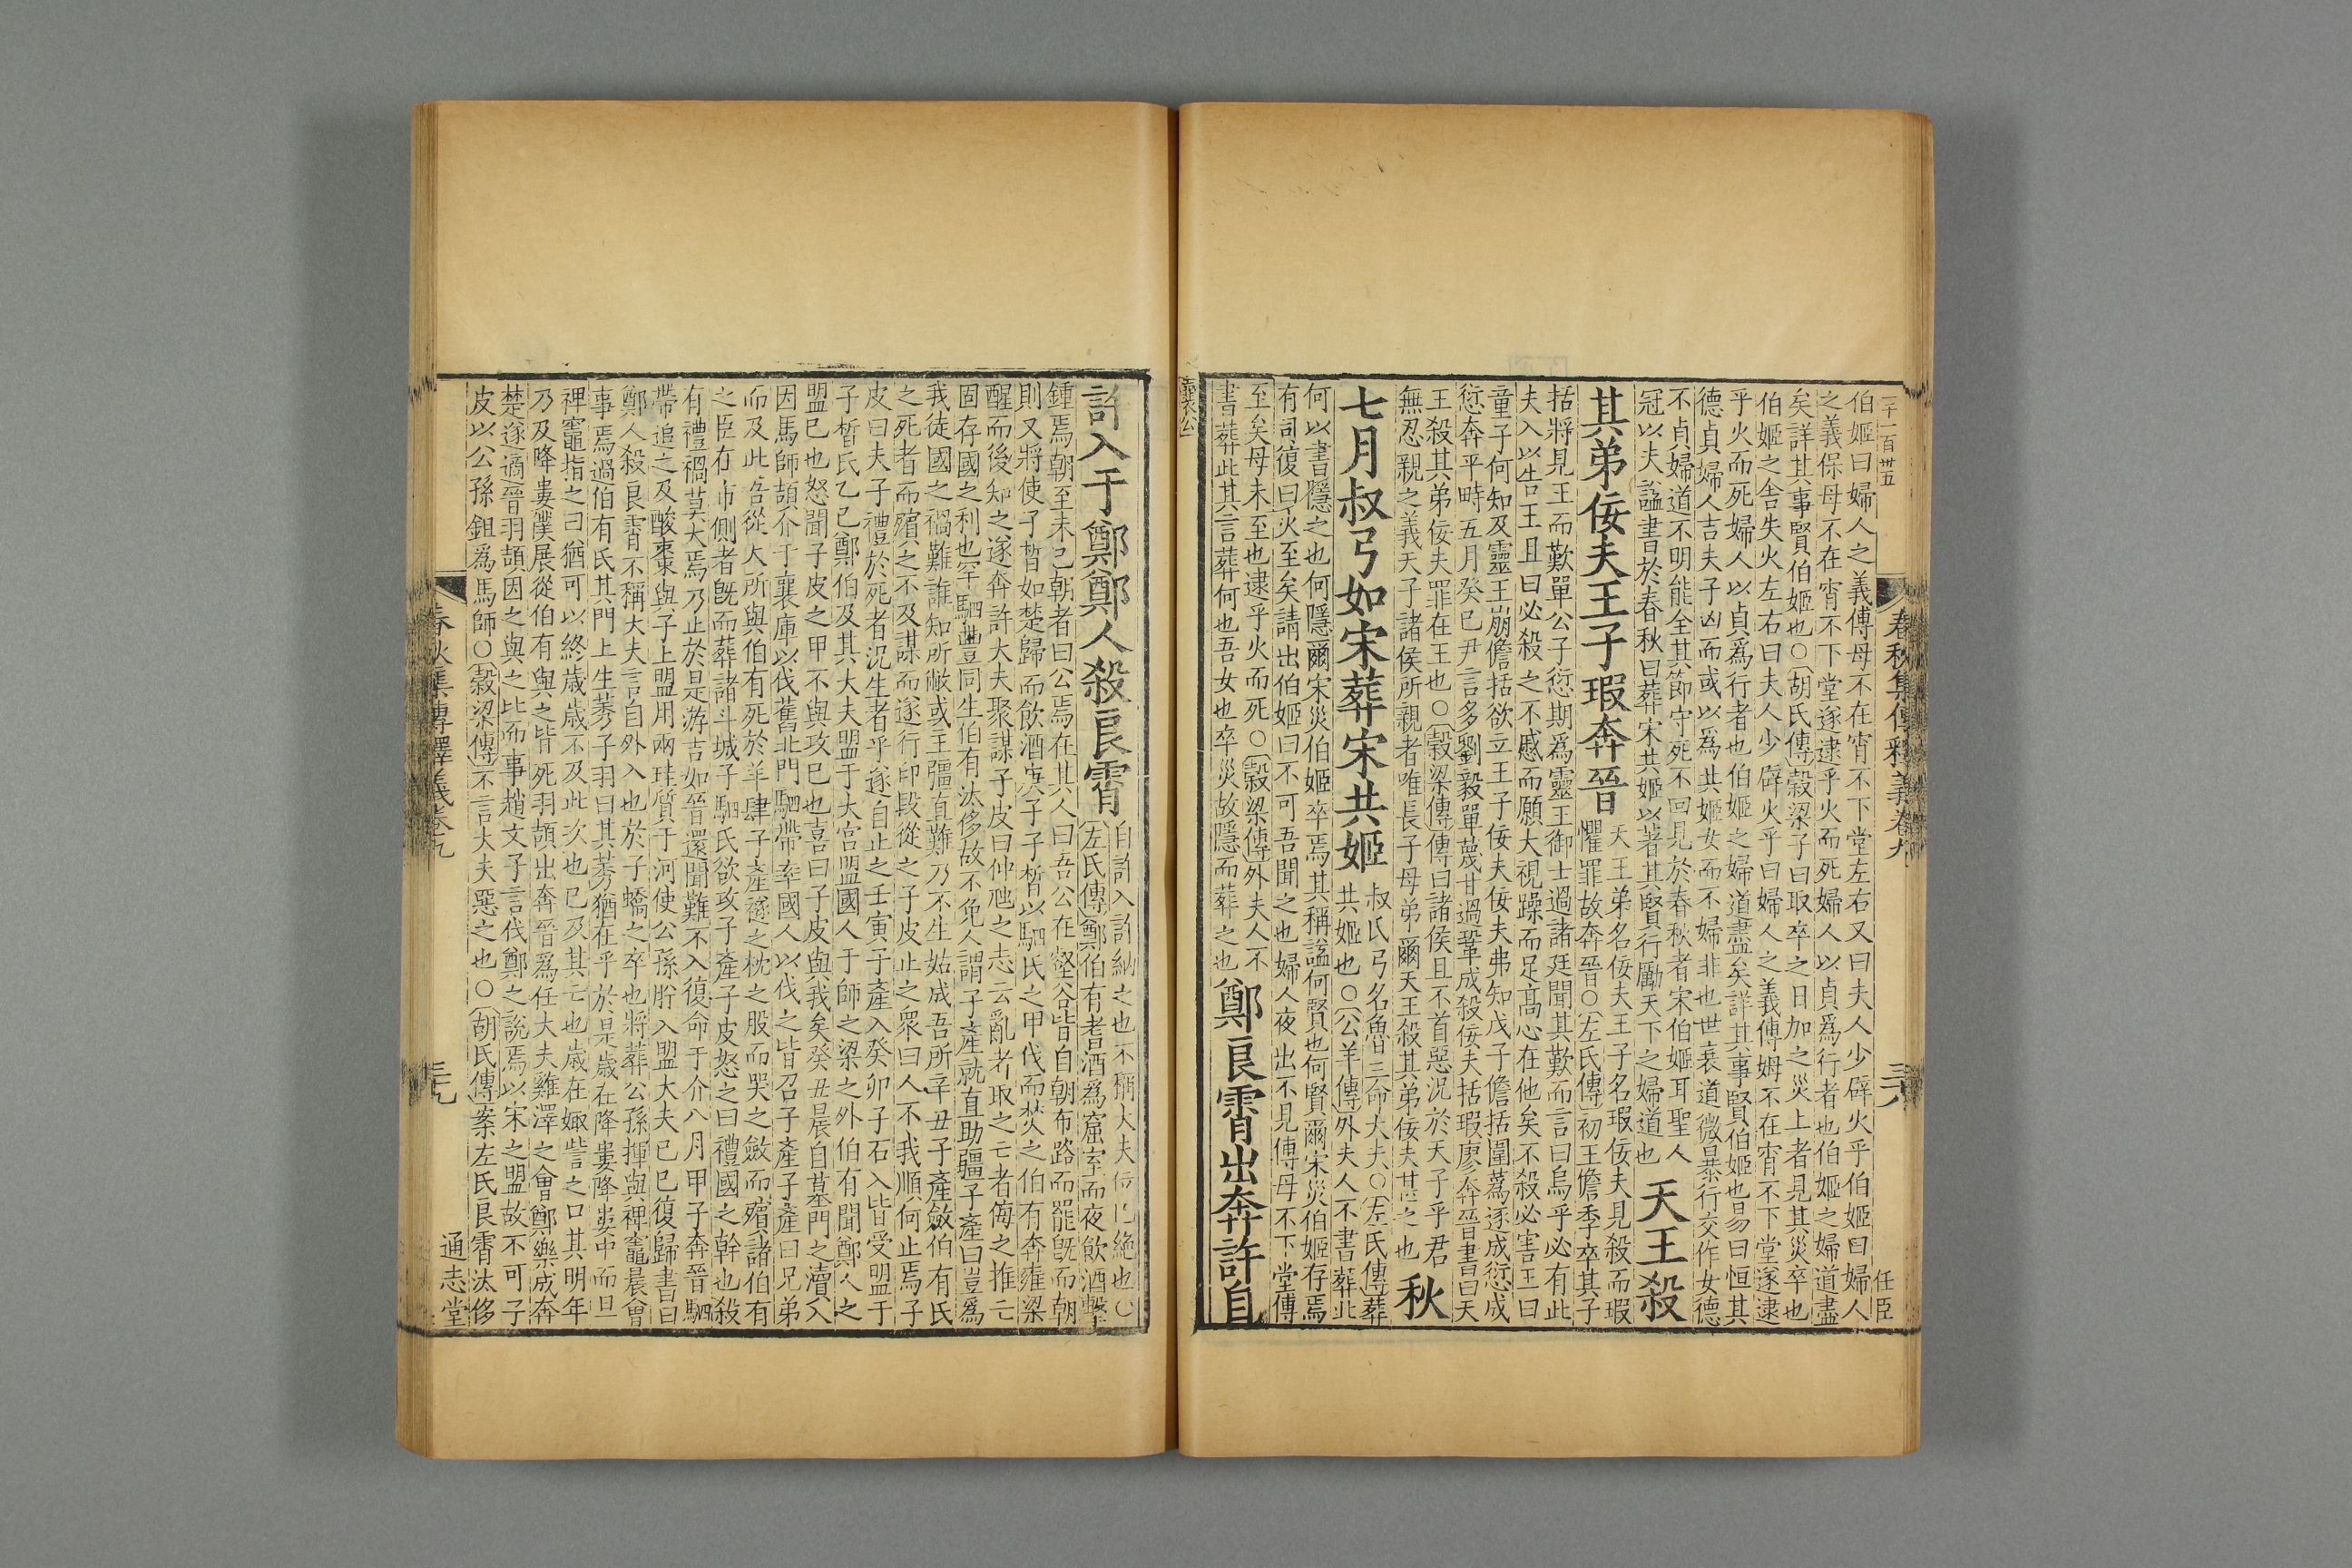 一千一百卅五
春秋集傳釋義卷九
三八
任臣
伯姬曰婦人之義傅母不在宵不下堂左右又曰夫人少辟火乎伯姬曰婦人
之義保母不在宵不下堂遂逮乎火而死婦人以貞爲行者也伯姬之婦道盡
矣詳其事賢伯姬也○胡氏傳穀梁子曰取卒之日加之災上者見其災卒也
伯姬之舍失火左右曰夫人少辟火乎曰婦人之義傅姆不在宵不下堂遂逮
乎火而死婦人以貞爲行者也伯姬之婦道盡矣詳其事賢伯姬也易曰恒其
德貞婦人吉夫子凶而或以爲共姬女而不婦非也世衰道微暴行交作女德
不貞婦道不明能全其節守死不回見於春秋者宋伯姬耳聖人
冠以夫謚書於春秋曰葬宋共姬以著其賢行勵天下之婦道也
天王殺
其弟佞夫王子瑕奔晉
天王弟名佞夫王子名瑕佞夫見殺而瑕
懼罪故奔晉○左氏傳初王儋季卒其子
括將見王而歎單公子愆期爲靈王御士過諸廷聞其歎而言曰烏乎必有此
夫入以告王且曰必殺之不慼而願大視躁而足高心在他矣不殺必害王曰
童子何知及靈王崩儋括欲立王子佞夫佞夫弗知戊子儋括圍蔿逐成愆成
愆奔平畤五月癸巳尹言多劉毅單蔑甘過鞏成殺佞夫括瑕廖奔晉書曰天
王殺其弟佞夫罪在王也○穀梁傳傳曰諸侯且不首惡況於天子乎君
無忍親之義天子諸侯所親者唯長子母弟爾天王殺其弟佞夫甚之也
秋
七月叔弓如宋葬宋共姬
叔氏弓名魯三命大夫○左氏傳葬
共姬也○公羊傳外夫人不書葬此
何以書隱之也何隱爾宋災伯姬卒焉其稱謚何賢也何賢爾宋災伯姬存焉
有司復曰火至矣請出伯姬曰不可吾聞之也婦人夜出不見傅母不下堂傅
至矣母未至也逮乎火而死○穀梁傳外夫人不
書葬此其言葬何也吾女也卒災故隱而葬之也
鄭良霄出奔許自
襄公
許入于鄭鄭人殺良霄
自許入許納之也不稱大夫位已絶也○
左氏傳鄭伯有耆酒爲窟室而夜飲酒擊
鍾焉朝至未已朝者曰公焉在其人曰吾公在壑谷皆自朝布路而罷旣而朝
則又將使子晳如楚歸而飲酒庚子子晳以駟氏之甲伐而焚之伯有奔雍梁
醒而後知之遂奔許大夫聚謀子皮曰仲虺之志云亂者取之亡者侮之推亡
固存國之利也罕駟豐同生伯有汰侈故不免人謂子產就直助彊子產曰豈爲
我徒國之禍難誰知所敝或主彊直難乃不生姑成吾所辛丑子產斂伯有氏
之死者而殯之不及謀而遂行印段從之子皮止之衆曰人不我順何止焉子
皮曰夫子禮於死者況生者乎遂自止之壬寅子產入癸卯子石入皆受盟于
子晳氏乙巳鄭伯及其大夫盟于大宮盟國人于師之梁之外伯有聞鄭人之
盟已也怒聞子皮之甲不與攻已也喜曰子皮與我矣癸丑晨自墓門之瀆入
因馬師頡介于襄庫以伐舊北門駟帶率國人以伐之皆召子產子產曰兄弟
而及此吾從天所與伯有死於羊肆子產襚之枕之股而哭之斂而殯諸伯有
之臣在市側者旣而葬諸斗城子駟氏欲攻子產子皮怒之曰禮國之幹也殺
有禮禍莫大焉乃止於是游吉如晉還聞難不入復命于介八月甲子奔晉駟
帶追之及酸棗與子上盟用兩珪質于河使公孫肸入盟大夫己巳復歸書曰
鄭人殺良霄不稱大夫言自外入也於子蟜之卒也將葬公孫揮與裨竈晨會
事焉過伯有氏其門上生莠子羽曰其莠猶在乎於是歲在降婁降婁中而旦
裨竈指之曰猶可以終歲歲不及此次也已及其亡也歲在娵訾之口其明年
乃及降婁僕展從伯有與之皆死羽頡出奔晉爲任大夫雞澤之會鄭樂成奔
楚遂適晉羽頡因之與之比而事趙文子言伐鄭之說焉以宋之盟故不可子
皮以公孫鉏爲馬師○穀梁傳不言大夫惡之也○胡氏傳案左氏良霄汰侈
春秋集傳釋義卷九
三九
通志堂